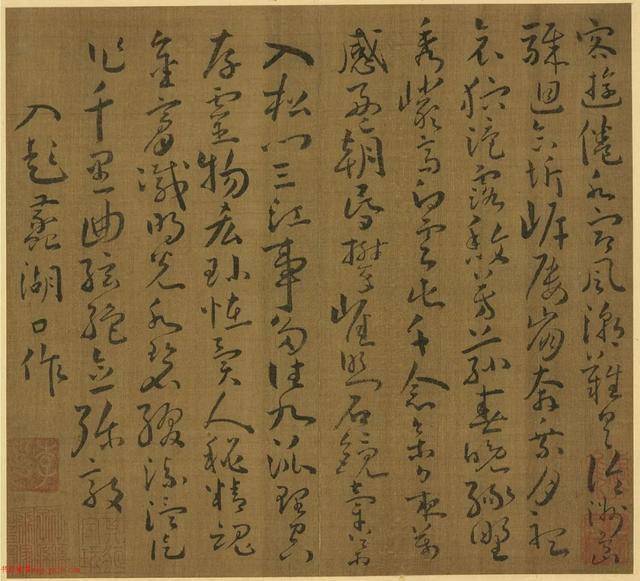 客遊倦水宿風潮難具論洲島
驟迴合圻岸屢崩奔乘月聽
哀狖浥露馥芳蓀春晚綠野
秀巖高白雲屯千念集日夜萬
感盈朝昏攀崖照石鏡牽葉
入松門三江事多往九派理空
存靈物吝珍怪異人秘精魂
金膏滅明光水碧綴流溫徒
作千里曲絃絕念彌敦
入彭蠡湖口作